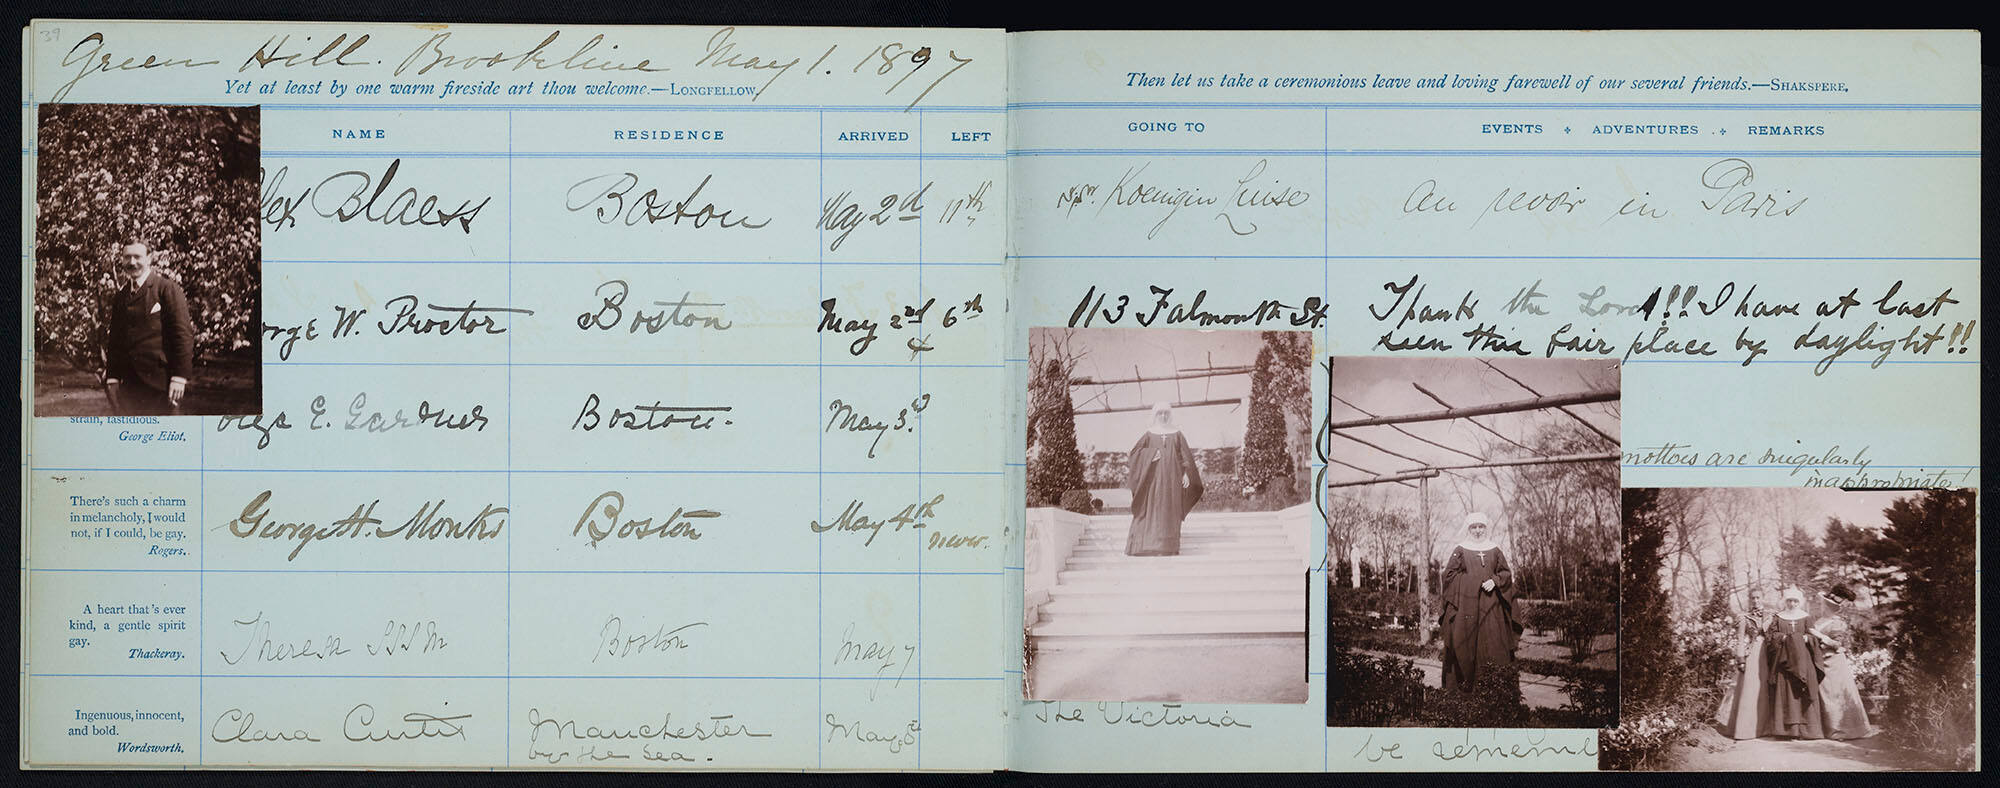 39
Green Hill. Brookline May 1. 1897
Yet at least by one warm fireside art thou welcome.—LONGFELLOW.
NAME RESIDENCE ARRIVED LEFT
Blaess Boston May 2nd 11th
George W. Proctor Boston May 2nd 6th
&
strain, fastidious.
George Eliot.
E. Gardner Boston. May 3rd.
There's such a charm
in melancholy, I would
not, if I could, be gay.
Rogers.
George H. Monks Boston May 4th never.
A heart that's ever
kind, a gentle spirit
gay.
Thackeray.
Theresa SSSM Boston May 7
Ingenuous, innocent,
and bold.
Wordsworth.
Clara Curtis Manchester May
by the Sea.
Then let us take a ceremonious leave and loving farewell of our several friends.—SHAKSPERE.
GOING TO EVENTS ADVENTURES REMARKS
Koenigin Luise au revoir in Paris
113 Falmouth St. Thank the Lord!!! I have at last
seen this fair place by daylight!!
mottoes are singularly
inappropriate!
The Victoria
be